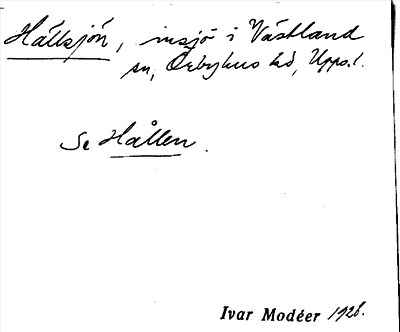 Hållsjön, insjö i Västland
sn, Örbyhus hd, Upps.l.
Se Hållen.
Ivar Modéer 1928.